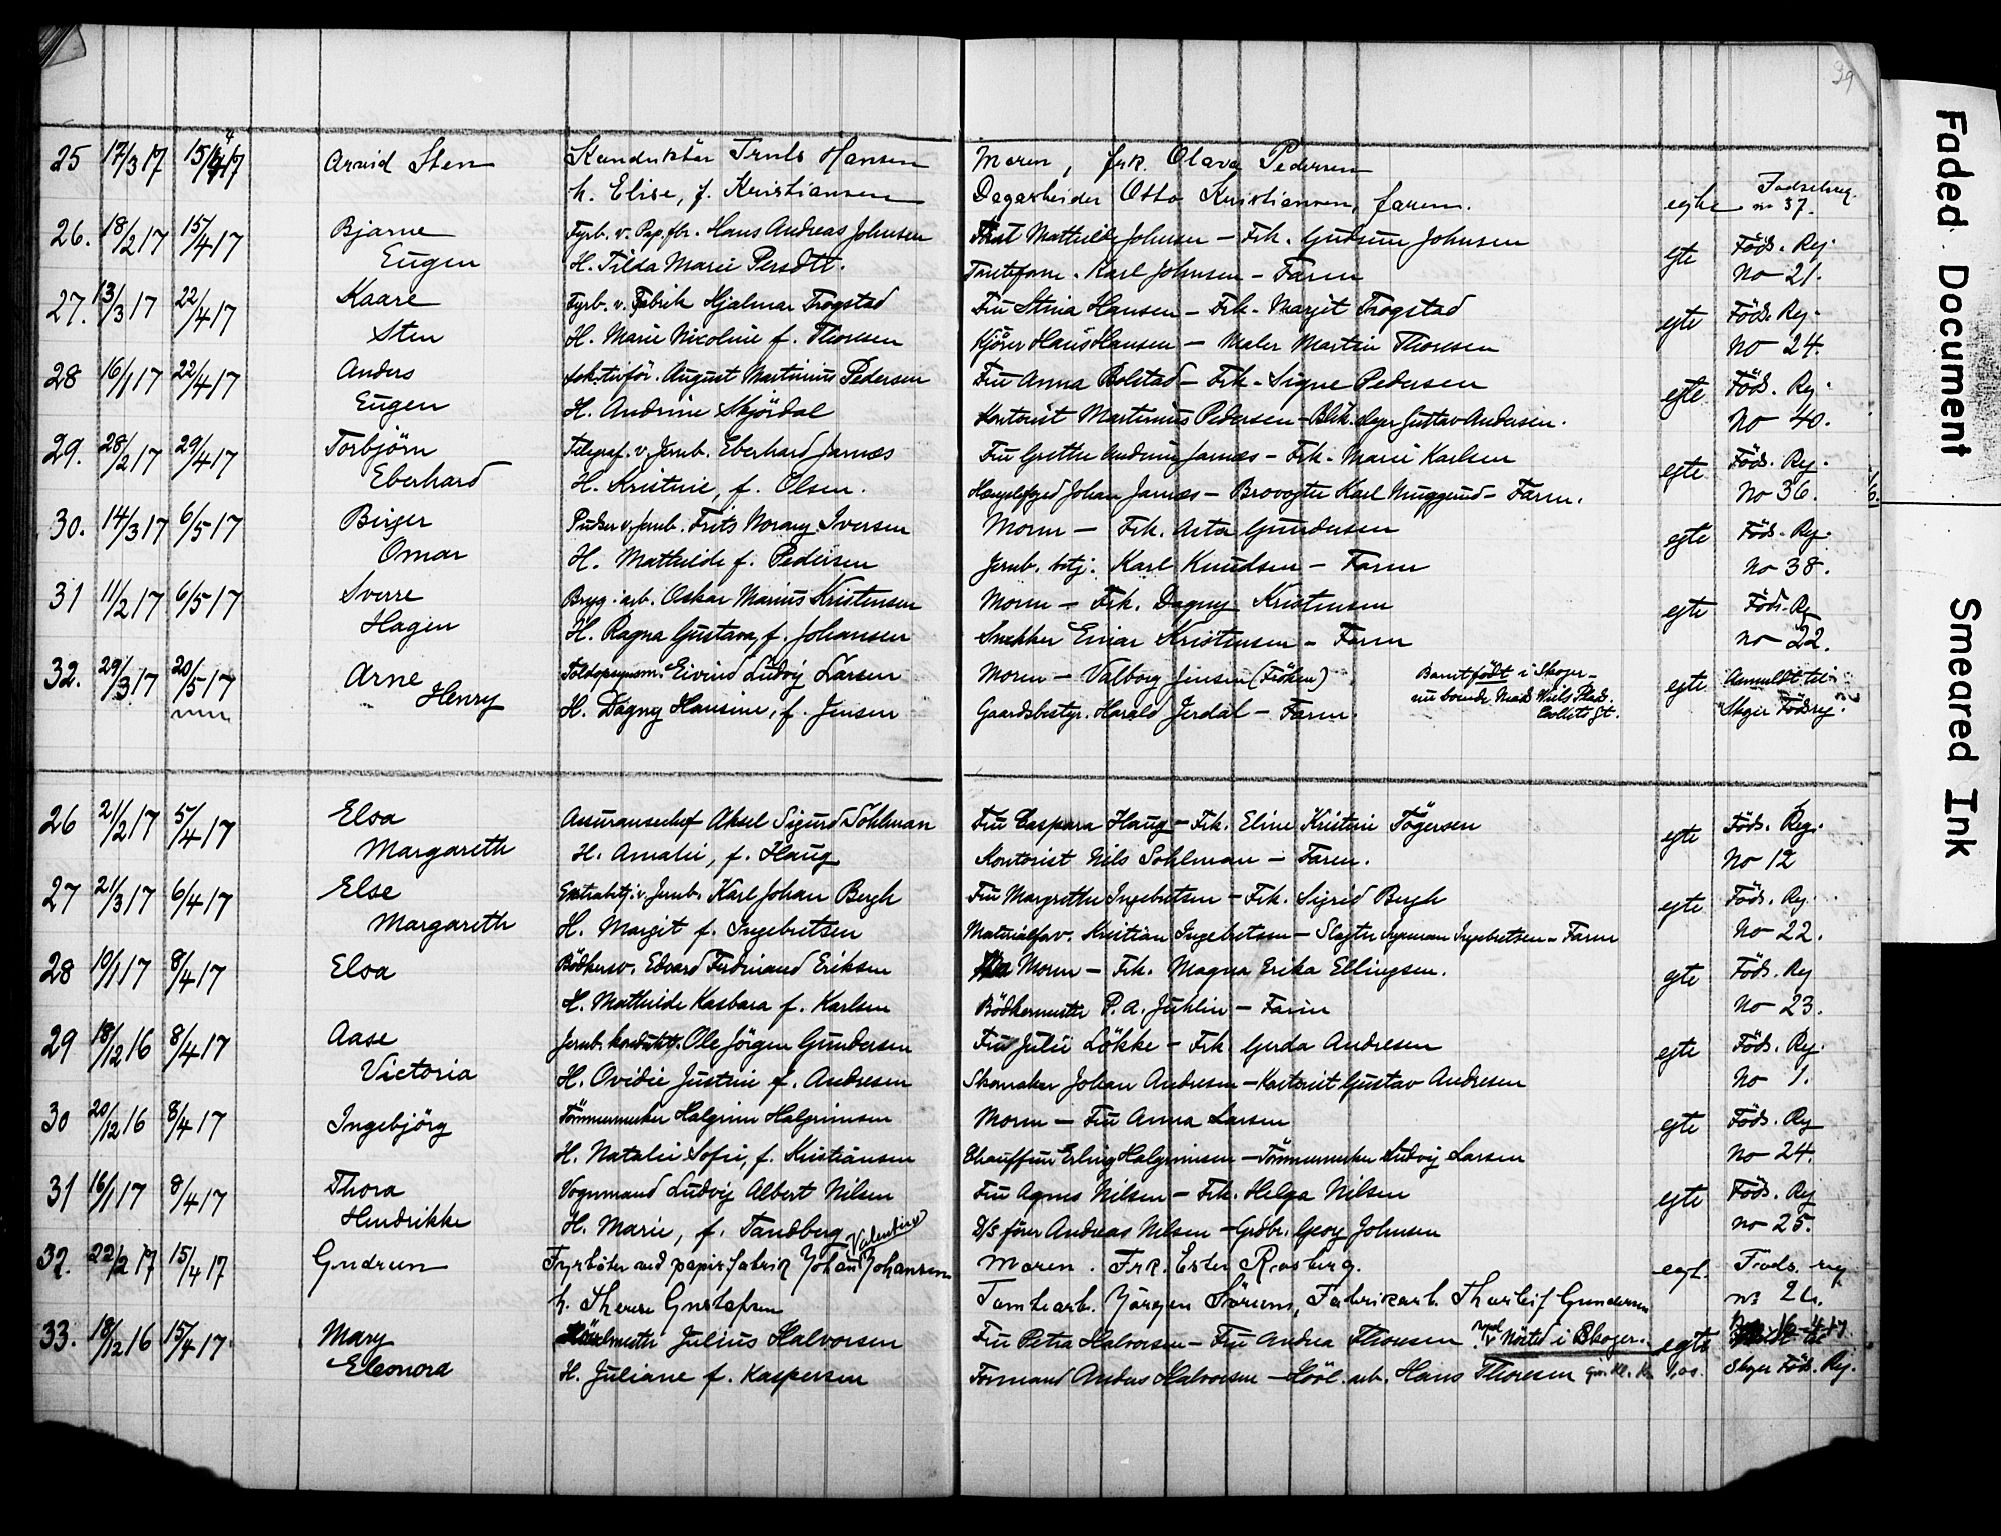 39
25 17/3 17 15/4 17 Arvid Sten Konduktör Truls Hansen Moren, frk. Olava Pedersen
h. Elise, f. Kristiansen Dagarbeider Otto Kristiansen, faren. egte Fødselsreg. no 37.
26. 18/2 17 15/4 17 Bjarne Fyrb. v. Pap.fbr. Hans Andreas Johnsen Mathilde Johnsen – Frk. Gudrun Johnsen
Eugen H. Tilda Marie Persdtr. Tomteform. Karl Johnsen – Faren egte Föds. Reg. No 21.
27. 13/3 17 22/4 17 Kaare Fyrb. v. Fabrik Hjalmar Trogstad Fru Stina Hansen – Frk. Marjit Trogstad
Sten H. Marie Nicoline f. Thoresen Kjörer Hans Hansen – Maler Martin Thoresen egte Föds. Reg. No 24.
28 16/1 17 22/4 17 Anders August Martinius Pedersen Fru Anna Bolstad – Frk. Signe Pedersen
Eugen H. Andrine Skjördal Kontorist Martinius Pedersen – Gustav Andersen. egte Föds. Reg. No 40.
29. 28/2 17 29/4 17 Torbjörn Telegraf. v. Jernb. Eberhard Jarnæs Fru Grethe Andrine Jarnæs – Frk. Marie Karlsen
Eberhard H. Kristine, f. Olsen. Johan Jarnæs – Brovogter Karl Muggerud – Faren. egte Föds. Reg. No 36.
30. 14/3 17 6/5 17 Birger Pudser v. Jernb. Frits Norany Iversen Moren – Frk. Asta Gundersen
Omar H. Mathilde f. Pedersen Jernb. btj. Karl Knudsen – Faren egte Föds. Reg. No 38.
31 11/2 17 6/5 17 Sverre Bryg. arb. Oskar Marius Kristensen Moren – Frk. Dagny Kristensen
Hagen H. Ragna Gustava, f. Johansen Snekker Einar Kristensen – Faren egte Föds. Reg No 22.
32. 29/3 17 20/5 17 Arne Toldopsynsm. Eivind Ludvig Larsen Moren – Valborg Jensen (Fröken) Barnet födt i Skoger –
Henry H. Dagny Hansine, f. Jensen Gaardsbestyr. Harald Jerdal – Faren. nu boende Mads Wiels Plads. Colletts gt. egte Anmeldt til Skger Födsreg.
26 21/2 17 5/4 17 Elsa Assuransechef Aksel Sigurd Sohlman Fru Caspara Haug – Frk. Eline Kristine Fögersen
Margareth H. Amalie, f. Haug Kontorist Nils Sohlman – Faren. egte Föds. Reg. No 12
27 21/3 17 6/4 17 Else Extrabtj. v. Jernb. Karl Johan Bergh Fru Margrethe Ingebretsen – Frk. Sigrid Bergh
Margareth H. Margit f. Ingebretsen Materialforv. Kristian Ingebretsen – Slagter Ingeman Ingebretsen – Faren egte Föds. Reg. No 22.
28 10/1 17 8/4 17 Elsa Bödkersv. Edvard Ferdinand Eriksen Moren – Frk. Magna Erika Ellingsen.
H. Mathilde Kasbara f. Karlsen Bödkermester P. A. Juhlin – Faren egte Föds. Reg No 23.
29 18/12 16 8/4 17 Aase Jernb. kondukt. Ole Jörgen Gundersen Fru Julie Lökke – Frk. Gerda Andresen
Victoria H. Ovidie Justine f. Andresen Skomaker Johan Andresen – Kontorist Gustav Andresen egte Föds. Reg. No 1.
30 20/12 16 8/4 17 Ingebjörg Tömmermerker Halgrim Halgrimsen Moren – Fru Anna Larsen
H. Natalie Sofie, f. Kristiansen Chauffeur Erling Halgrimsen – Tömmermerker Ludvig Larsen egte Föds. Reg No 24.
31 16/1 17 8/4 17 Thora Vognmand Ludvig Albert Nilsen Fru Agnes Nilsen – Frk. Helga Nilsen
Hendrikke H. Marie, f. Tandberg D/S förer Andreas Nilsen – Grdbr. Georg Johnsen egte Föds. Reg No 25.
32. 22/2 17 15/4 17 Gudrun Fyrböter ved papirfabrik Johan Valentin Johansen Moren. Frk. Ester Rosberg.
h. Therese Gustafsen Tomtearb. Jörgen Sörum, Fabrikarb. Thorleif Gundersen egt. Föds. reg no 26.
33. 18/12 16 15/4 17 Mary Julius Halvorsen Fru Petra Halvorsen – Fru Andrea Thoresen v Mörted i Skoger. 16-4-17.
Eleonora H. Juliane f. Kaspersen Formand Anders Halvorsen – Hövl. arb. Hans Thoresen egte Skger Föds. Reg.
Faded Document
Smeared Ink